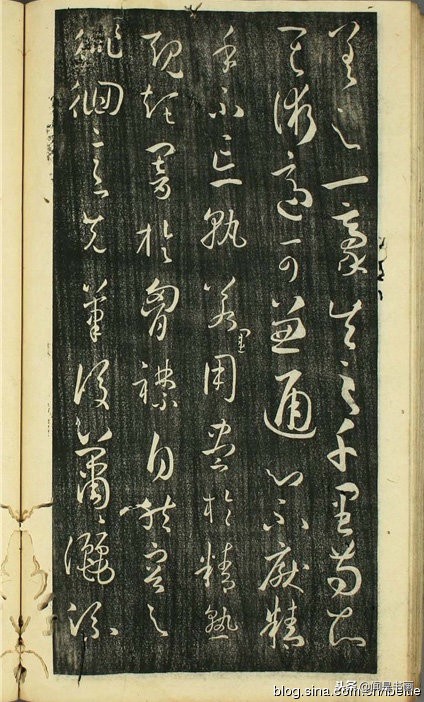 差之一豪失之千里苟知
其術適可兼通心不厭精
手不忘熟若運用盡於精熟
規矩闇於胸襟自然容與
徘徊意先筆後瀟灑流
blog.sina.com.cn/beitie